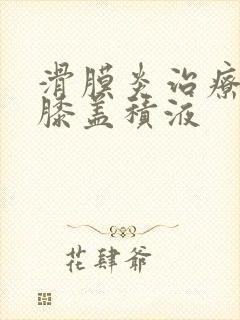 滑膜炎治療
膝盖積液
花肆爷